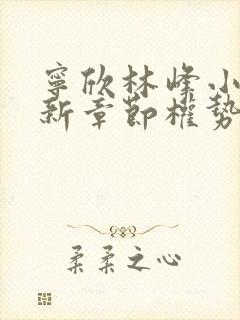 寧欣林峰小
新章節權勢
柔柔之心